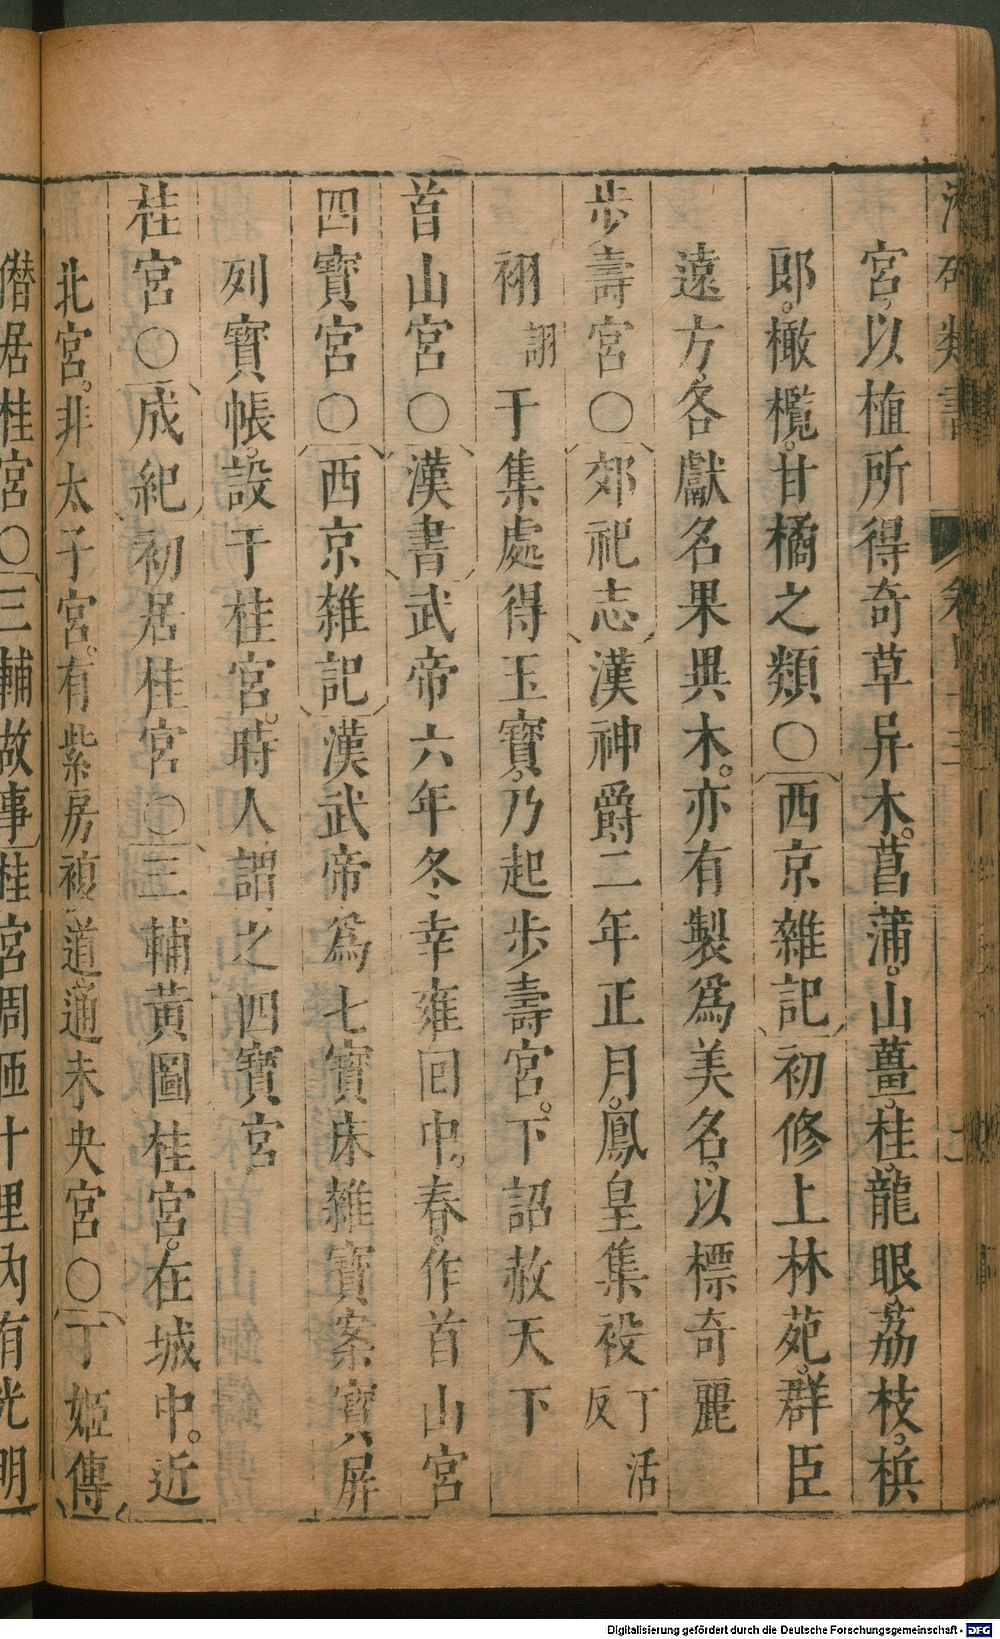 類書
宮以植所得奇草异木。菖蒲。山薑。桂。龍眼。荔枝。檳
郎。橄欖。甘橘之類〇西京雜記初修上林苑。群臣
遠方各獻名果異木。亦有製爲美名以標奇麗
步壽宮〇郊祀志漢神爵二年正月。鳳皇集祋丁活反
祤詡于集處得玉寶。乃起步壽宮。下詔赦天下
首山宮〇漢書武帝六年冬幸雍回中。春。作首山宮
四寶宮〇西京雜記漢武帝爲七寶床雜寶案寶屏
列寶帳。設于桂宮。時人謂之四寶宮
桂宮〇成紀初居桂宮〇三輔黃圖桂宮。在城中。近
北宮。非太子宮。有紫房複道通未央宮〇丁姬傳
僭居桂宮〇三輔故事桂宮周匝十里內有光明
Digitalisierung gefördert durch die Deutsche Forschungsgemeinschaft - DFG